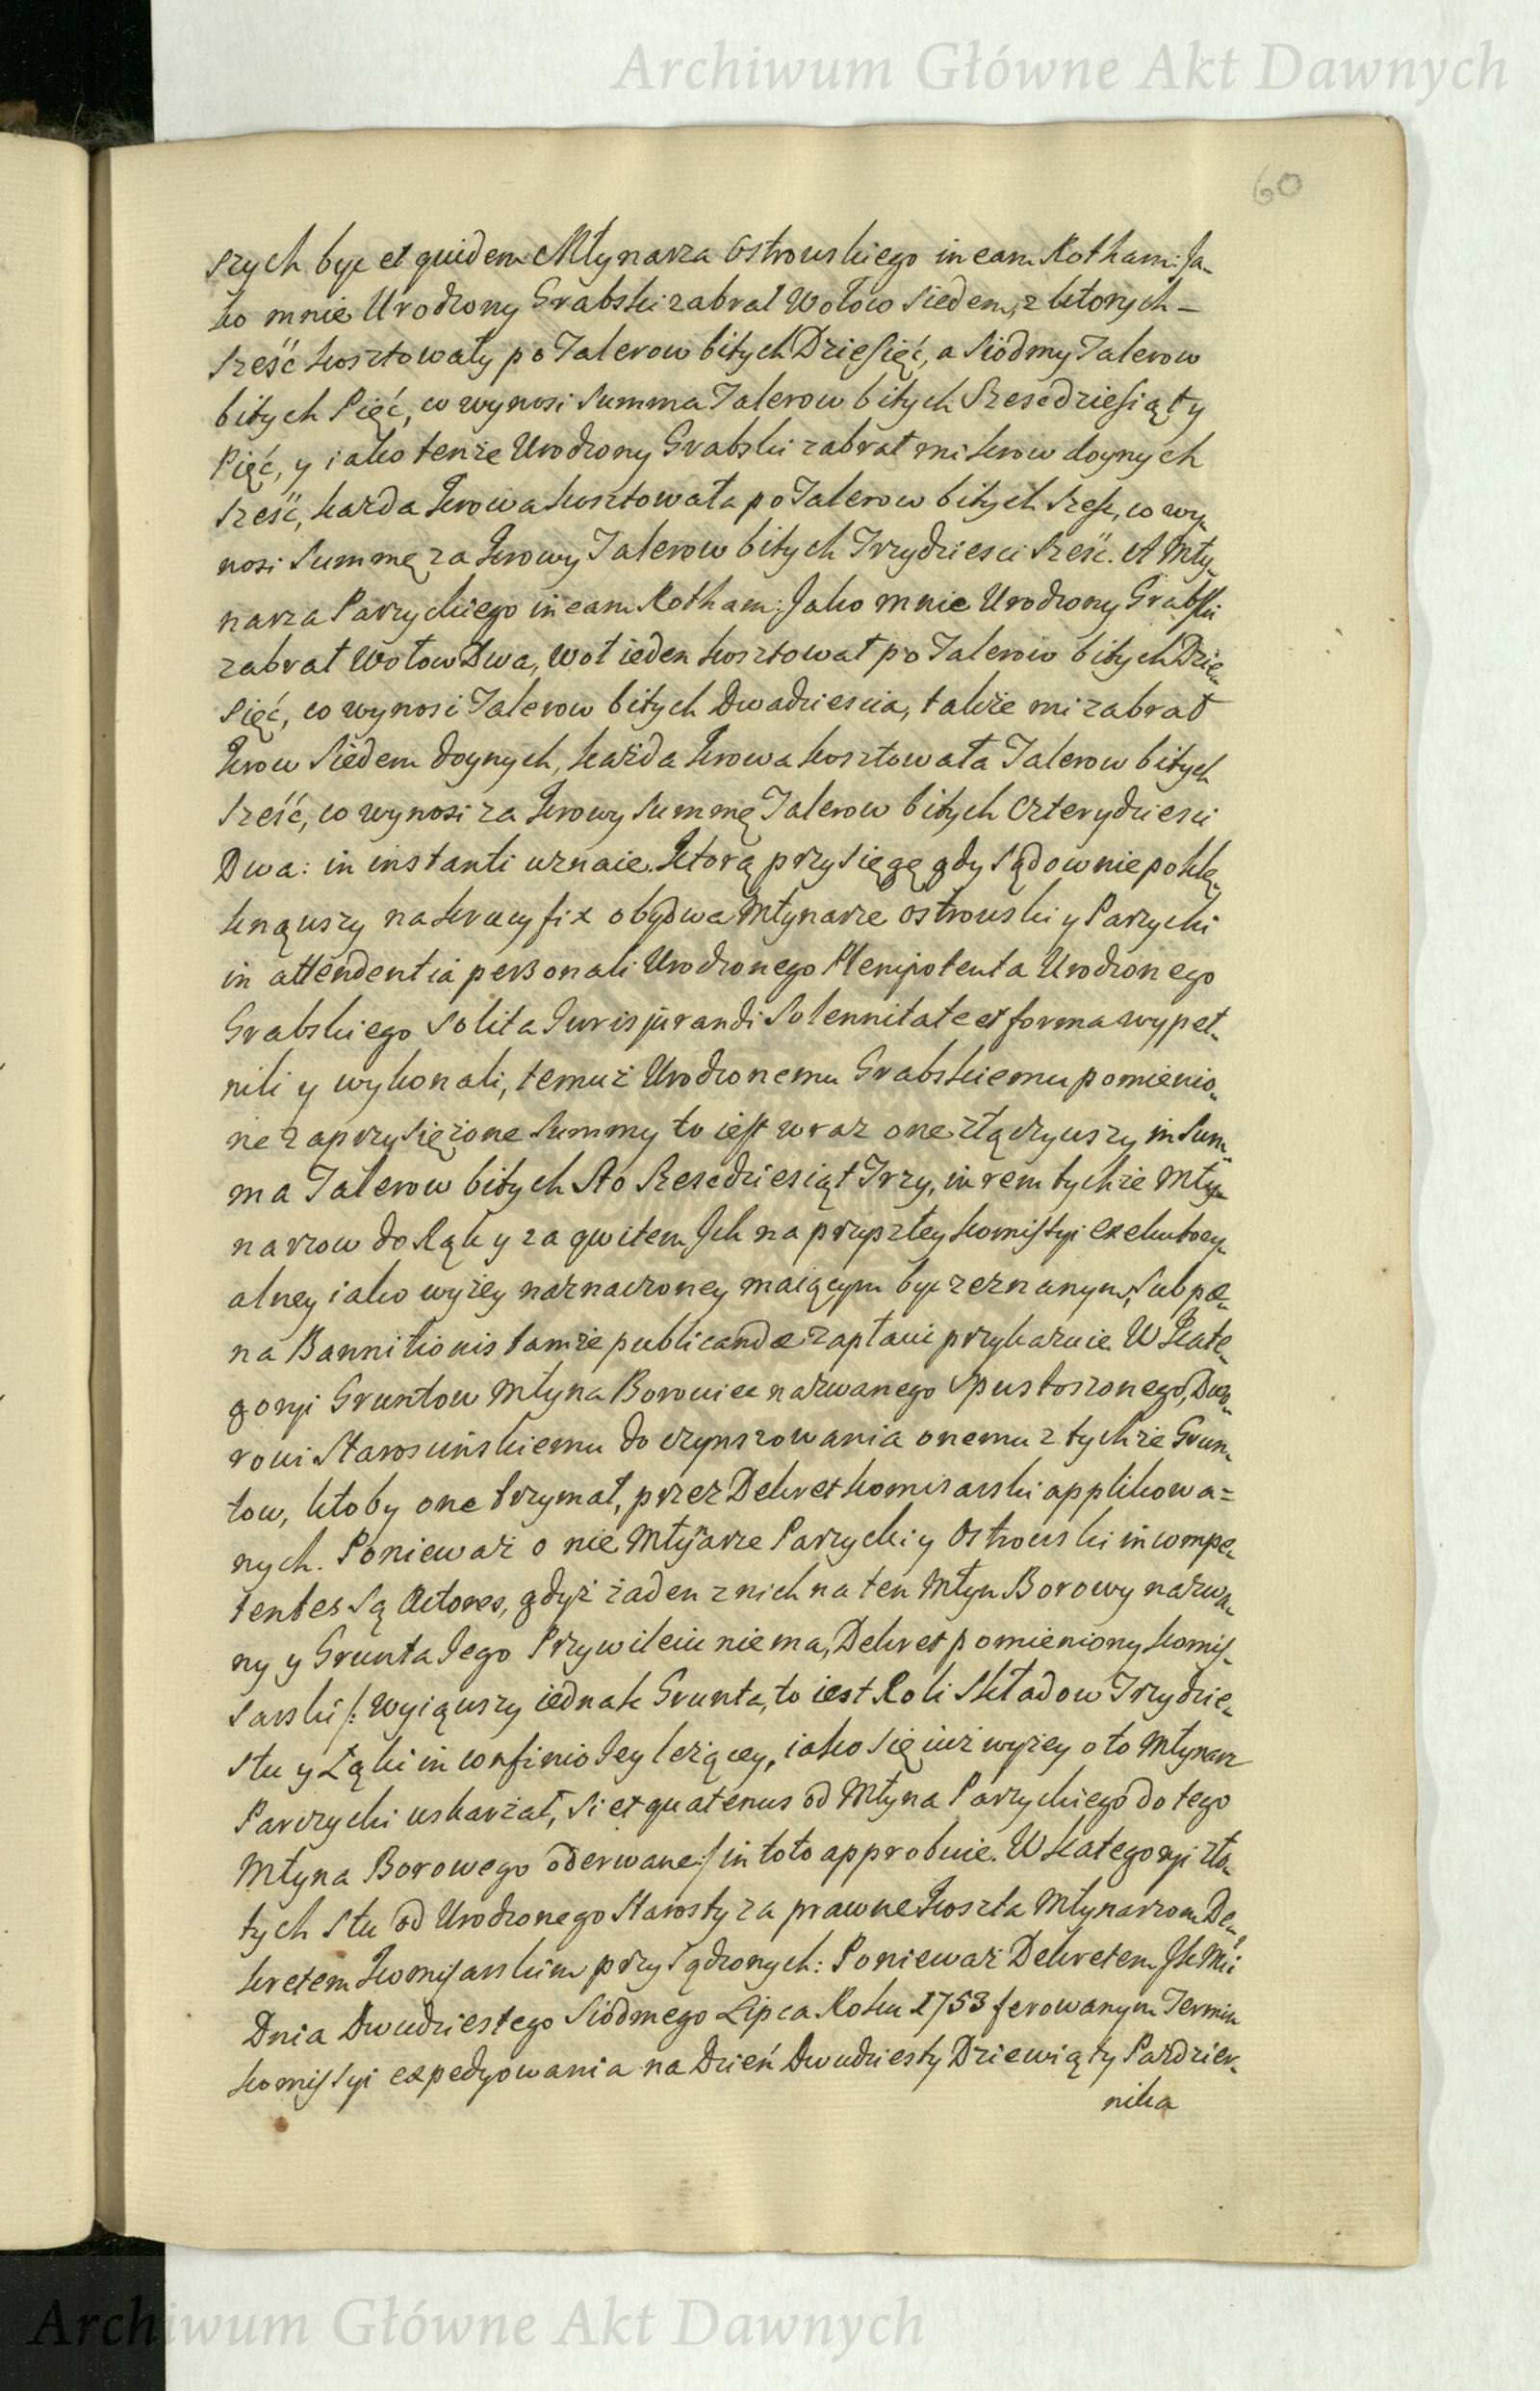 Archiwum Główne Akt Dawnych
60
szych byc et quidem Młynarza Ostrowskiego in eam Rotham: Ja-
ko mnie Urodzony Grabski zabrał Wołow Siedem, z ktorych -
Sześć kosztowały po Talerow bitych Dziesięć, a Siodmy Talerow
bitych Pięć, co wynosi Summa Talerow bitych Szescdziesiąt y
Pięć, y iako tenże Urodzony Grabski zabrał mi krow doynych
Sześć, każda krowa kosztowała po Talerow bitych Sześć, co wy-
nosi Summę za krowy Talerow bitych Trzydziesci Sześć. A Mły-
narza Parzyckiego in eam Rotham: Jako mnie Urodzony Grabski
zabrał Wołow Dwa, Woł ieden kosztował po Talerow bitych Dzie-
sięć, co wynosi Talerow bitych Dwadziescia, także mi zabrał
krow Siedem doynych, każda krowa kosztowała Talerow bitych
Sześć, co wynosi za krowy Summę Talerow bitych Czterydziesci
Dwa: in instanti uznaie. Ktorą przysięgę gdy Sądownie poklę-
knąwszy na krucyfix obydwa Młynarze Ostrowski y Parzycki
in attendentia personali Urodzonego Plenipotenta Urodzonego
Grabskiego Solita Jurisjurandi Solennitate et forma wypeł-
nili y wykonali, temuż Urodzonemu Grabskiemu pomienio-
ne zaprzysiężone Summy to iest wraz one złączywszy in Sum-
ma Talerow bitych Sto Szescdziesiąt Trzy, in rem tychże Mły-
narzow do Rąk y za qwitem Ich na przyszłey kommissyi exekutory-
alney iako wyżey naznaczoney maiącym byc zeznanym, Sub pœ-
na Bannitionis tamże publicandæ zapłacic przykazuie. W kate-
goryi Gruntow Młyna Borowiec nazwanego Spustoszonego, Dwo-
rowi Starościńskiemu do czynszowania onemu z tychże Grun-
tow, ktoby one trzymał, przez Dekret kommisarski applikowa=
nych. Ponieważ o nie Młynarze Parzycki y Ostrowski incompe-
tentes Są Actores, gdyż żaden z nich na ten Młyn Borowy nazwa-
ny y Grunta Jego Przywileiu niema, Dekret pomieniony kommis-
sarski /: Wyiąwszy iednak Grunta, to iest Roli Składow Trzydzie-
stu y Łąki in confinio Jey leżącey, iako się iuż wyżey o to Młynarz
Parczycki uskarżał, Si et quatenus od Młyna Parzyckiego do tego
Młyna Borowego oderwane :/ in toto approbuie. W kategoryi zło-
tych Stu od Urodzonego Starosty za prawne koszta Młynarzom De-
kretem kommissarskim przysądzonych: Ponieważ Dekretem JK Mci
Dnia Dwudziestego Siodmego Lipca Roku 1753 ferowanym Termin
kommissyi expedyowania na Dzień Dwudziesty Dziewiąty Pazdzier-
nika
Archiwum Główne Akt Dawnych